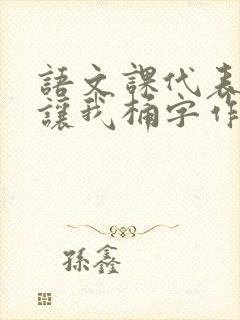 語文課代表
讓我桶字作
孫鑫